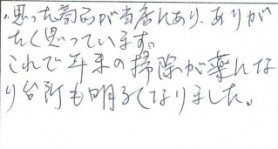 思った商品が当店にあり、ありが
たく思っています。
これで年末の掃除が楽にな
り台所も明るくなりました。